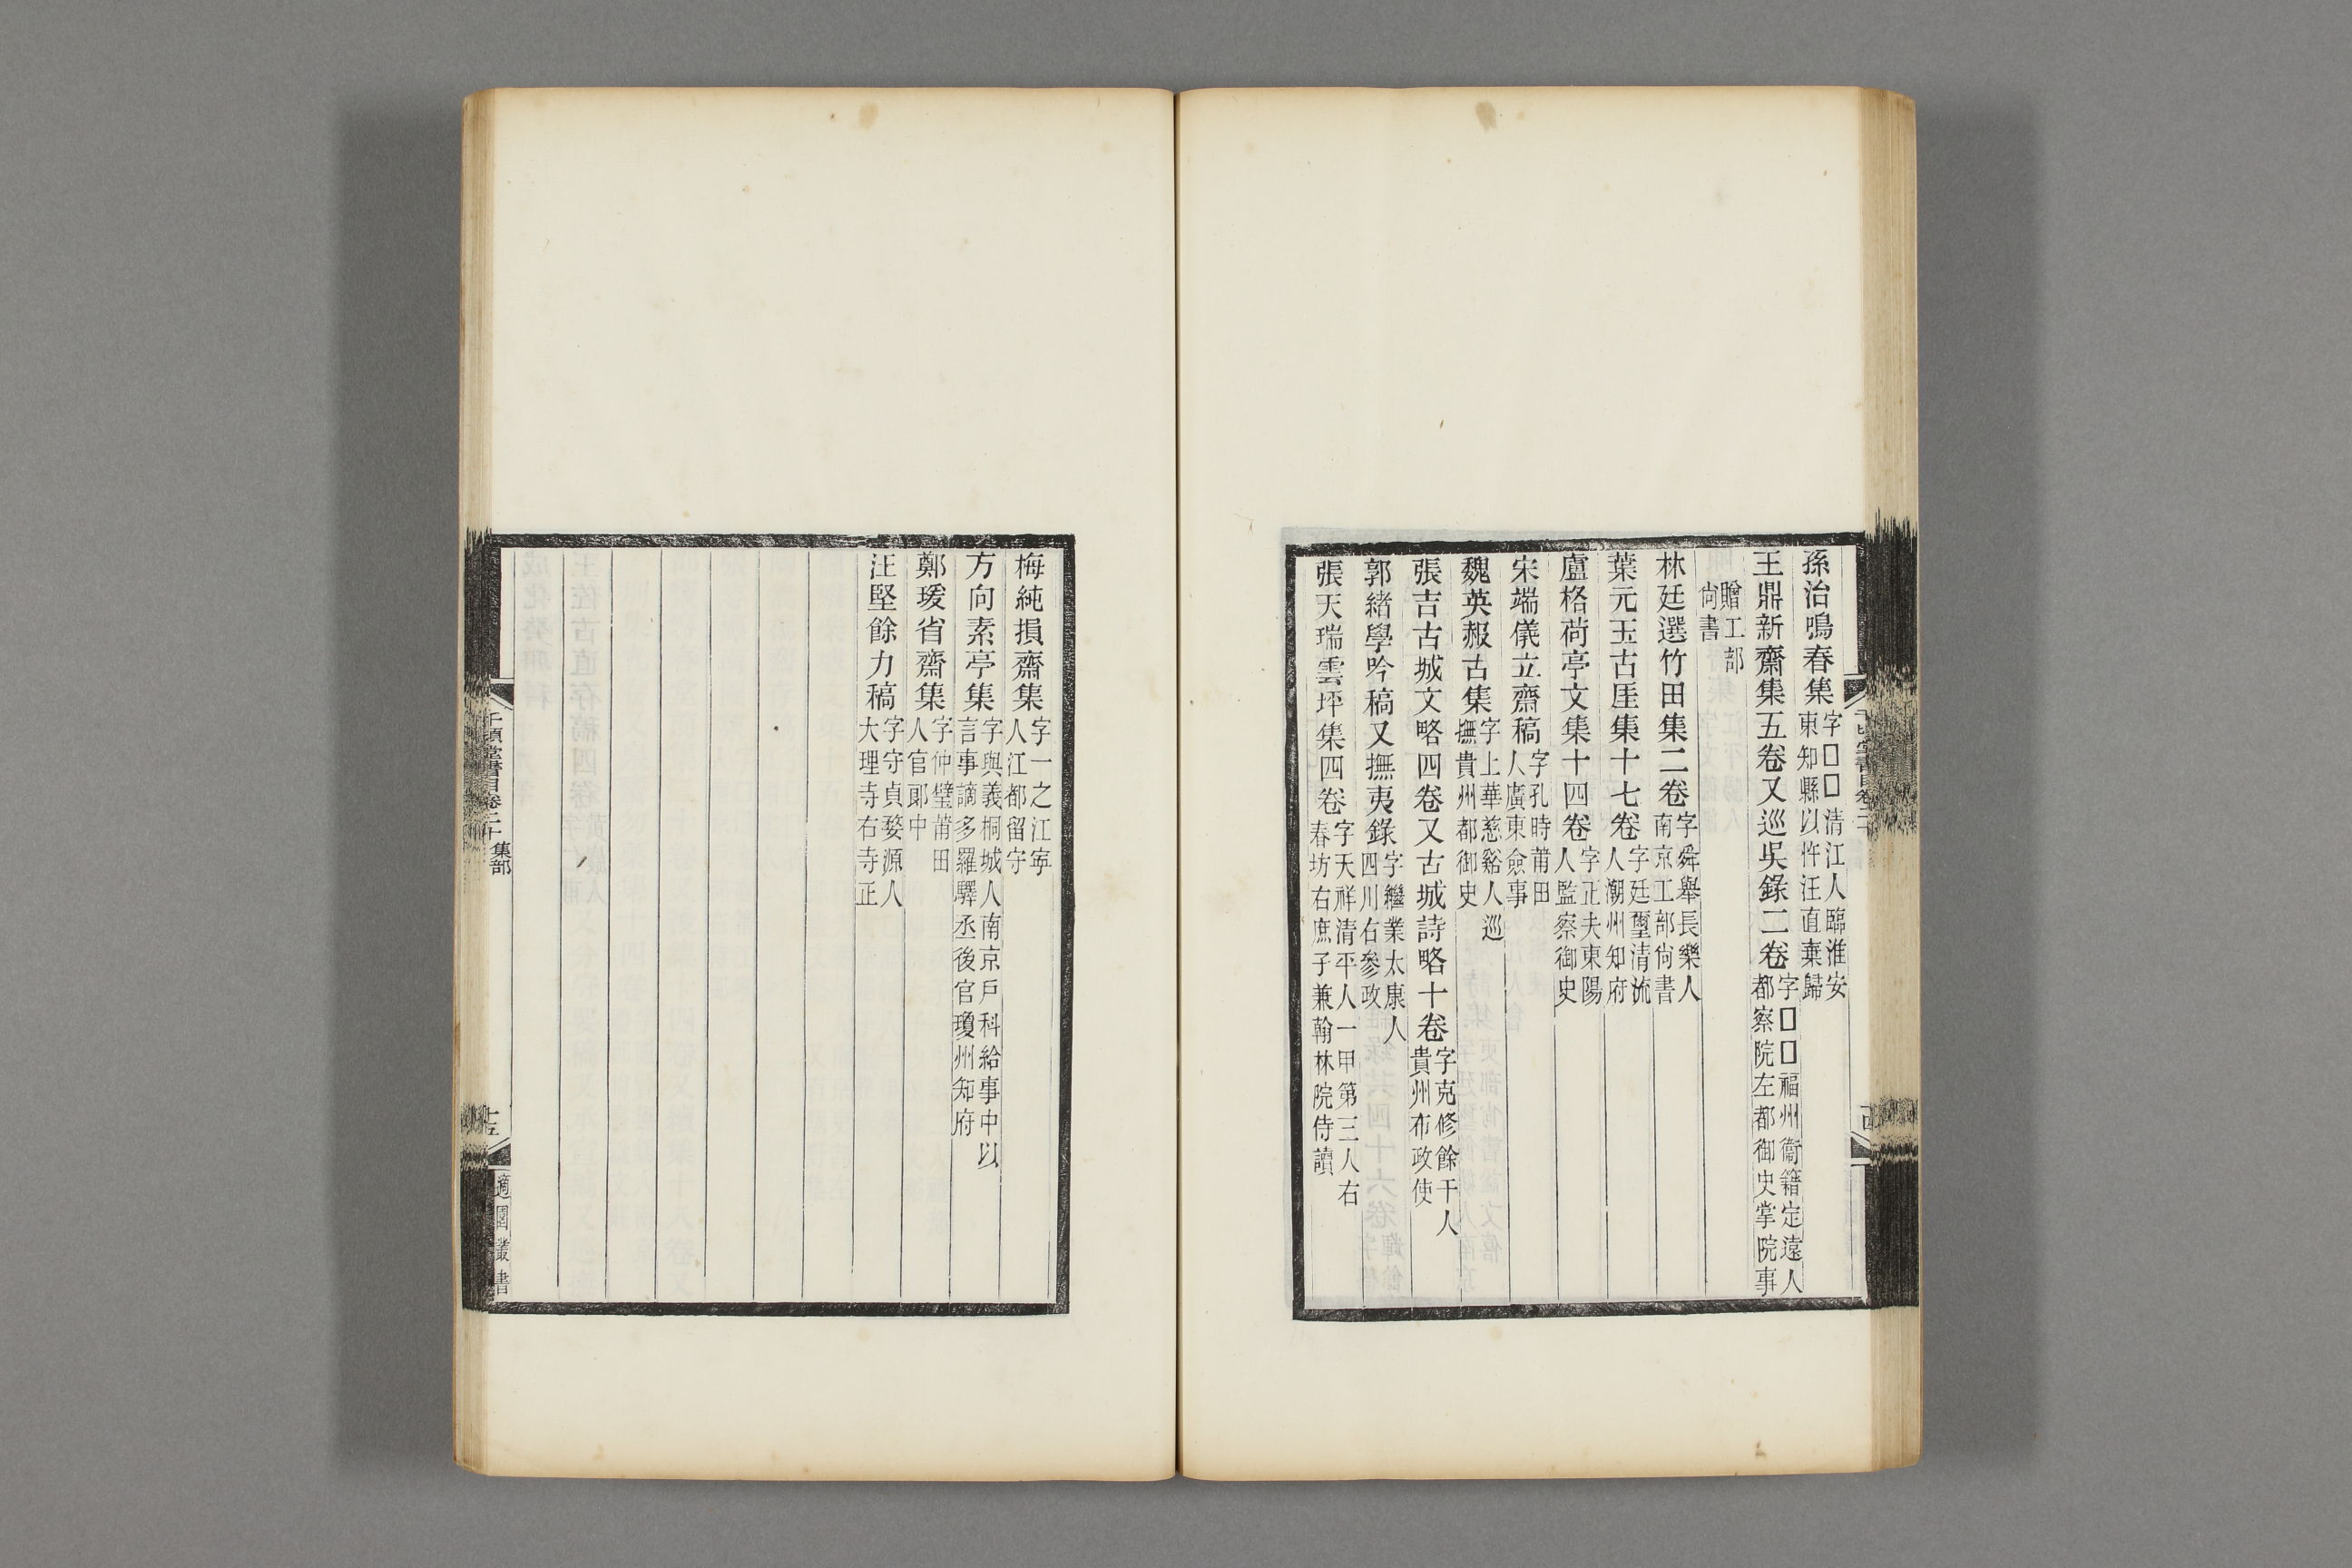 孫治鳴春集字□□清江人臨淮安東知縣以忤汪直棄歸
王鼎新齋集五卷又巡吳錄二卷字□□福州衞籍定遠人都察院左都御史掌院事
贈工部尙書
林廷選竹田集二卷字舜舉長樂人南京工部尙書
葉元玉古厓集十七卷字廷璽清流人潮州知府
盧格荷亭文集十四卷字正夫東陽人監察御史
宋端儀立齋稿字孔時莆田人廣東僉事
魏英赧古集字上華慈谿人巡撫貴州都御史
張吉古城文略四卷又古城詩略十卷字克修餘干人貴州布政使
郭緒學吟稿又撫夷錄字繼業太康人四川右參政
張天瑞雲坪集四卷字天祥清平人一甲第三人右春坊右庶子兼翰林院侍讀
梅純損齋集字一之江寧人江都留守
方向素亭集字與義桐城人南京戶科給事中以言事謫多羅驛丞後官瓊州知府
鄭瑗省齋集字仲璧莆田人官郞中
汪堅餘力稿字守貞婺源人大理寺右寺正
千頃堂書目卷二十 集部
十五
適園叢書